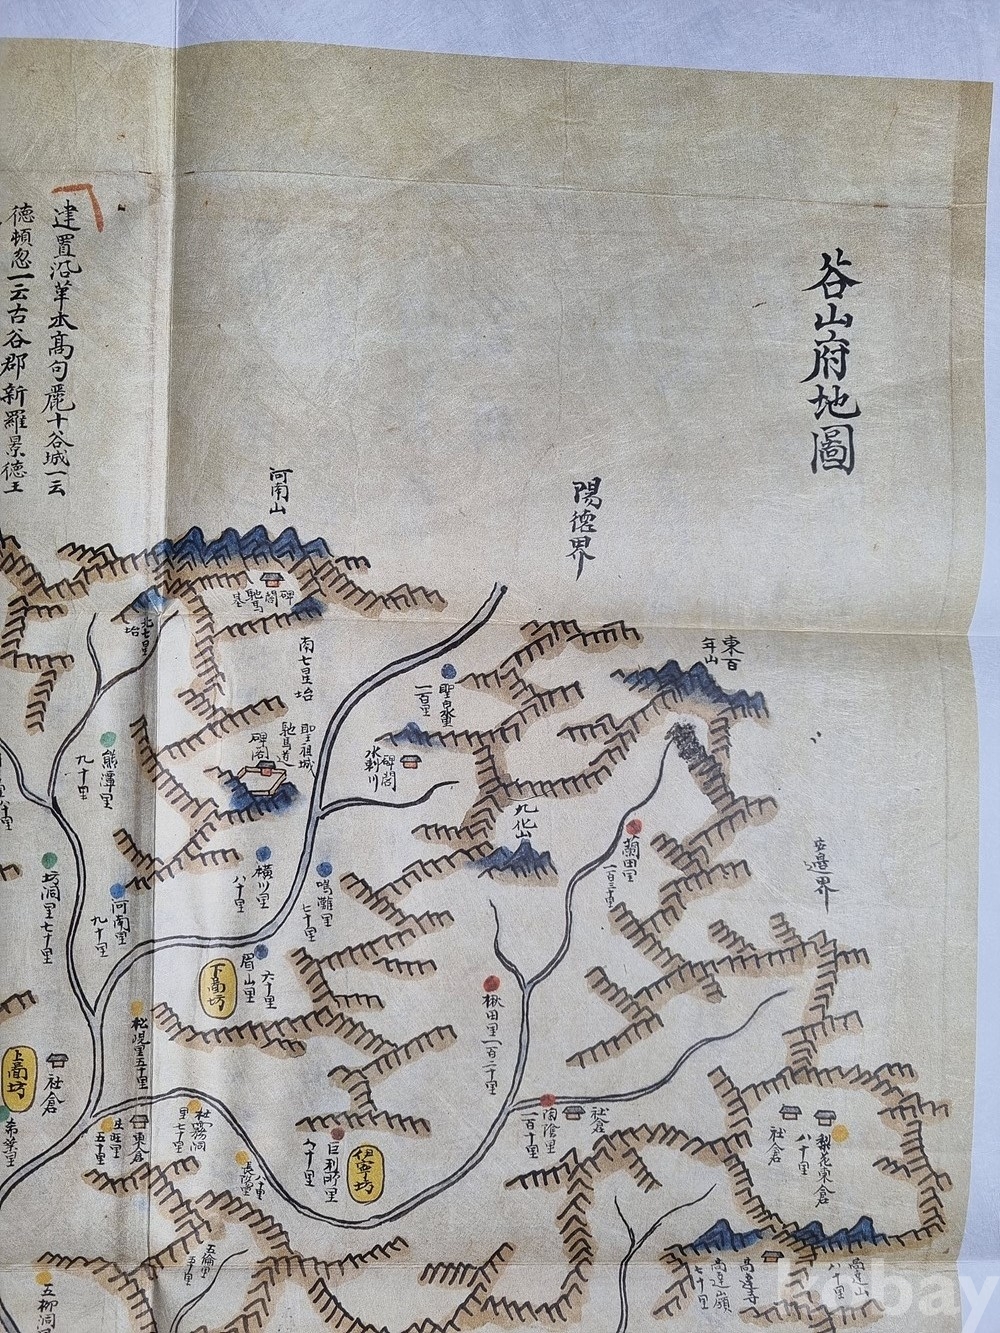 谷山府地圖
建置沿革本高句麗十谷城一云
德頓忽一云古谷郡新羅景德王
陽德界
河南山
碑閣
馳馬
基
北七星
坮
南七星坮
聖祖城
馳馬道
碑閣
聖泉里
一百里
水剌川
碑閣
東百
年山
九化山
蘭田里
一百三十里
安邊界
熊潭里
九十里
坊洞里七十里
河南里
九十里
橫川里
八十里
鳴灘里
七十里
眉山里
六十里
下啚坊
上啚坊
社倉
松峴里五十里
楸田里一百二十里
生旺里
五十里
東倉
杜霧洞
里七十里
巨利師里
八十里
伊寧坊
陶陰里
一百十里
社倉
社倉
梨花東倉
八十里
五倫里
五十里
五柳洞里
高達嶺
七十里
高達寺
高達山
八十里
kobay